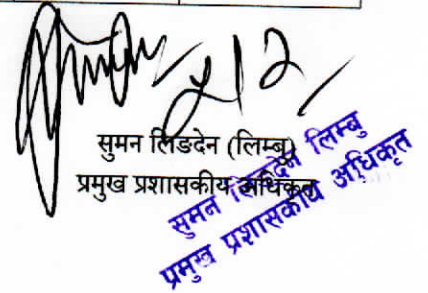 २।२
सुमन लिङदेन (लिम्बु)
प्रमुख प्रशासकीय अधिकृत
सुमन लिङदेन लिम्बु
प्रमुख प्रशासकीय अधिकृत